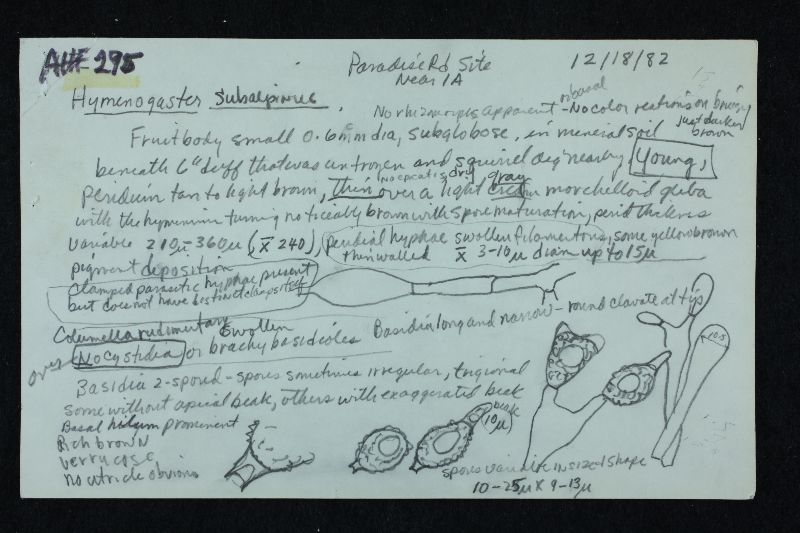 AHF 295
Paradise Rd Site
Near 1A
12/18/82
Hymenogaster subalpinus.
No rhizomorphs apparent - No color reactions on bruising
or basal
just darker
brown
Fruitbody small 0.6 cm dia, subglobose, in mineral soil
beneath 6" duff that was unfrozen and squirrel dig nearby Young,
no epicutis dry, gray
Peridium tan to light brown, thin over a light morchelloid gleba
with the hymenium turning noticeably brown with spore maturation, perid thickness
variable 210µ-360µ (x̄ 240), peridial hyphae swollen filamentous, some yellow brown
thin walled x̄ 3-10µ diam up to 15µ
pigment deposition
clamped parasitic hyphae present
but does not have distinct clamps itself
Columella rudimentary
swollen
Basidia long and narrow - round clavate at tip
over
No cystidia or brachybasidioles
10.5
Basidia 2-spored - spores sometimes irregular, trigonal
some without apical beak, others with exaggerated beak
Basal hilum prominent
beak
10µ
Rich brown
verrucose
no utricle obvious
spores variable in size & shape
10-25µ x 9-13µ